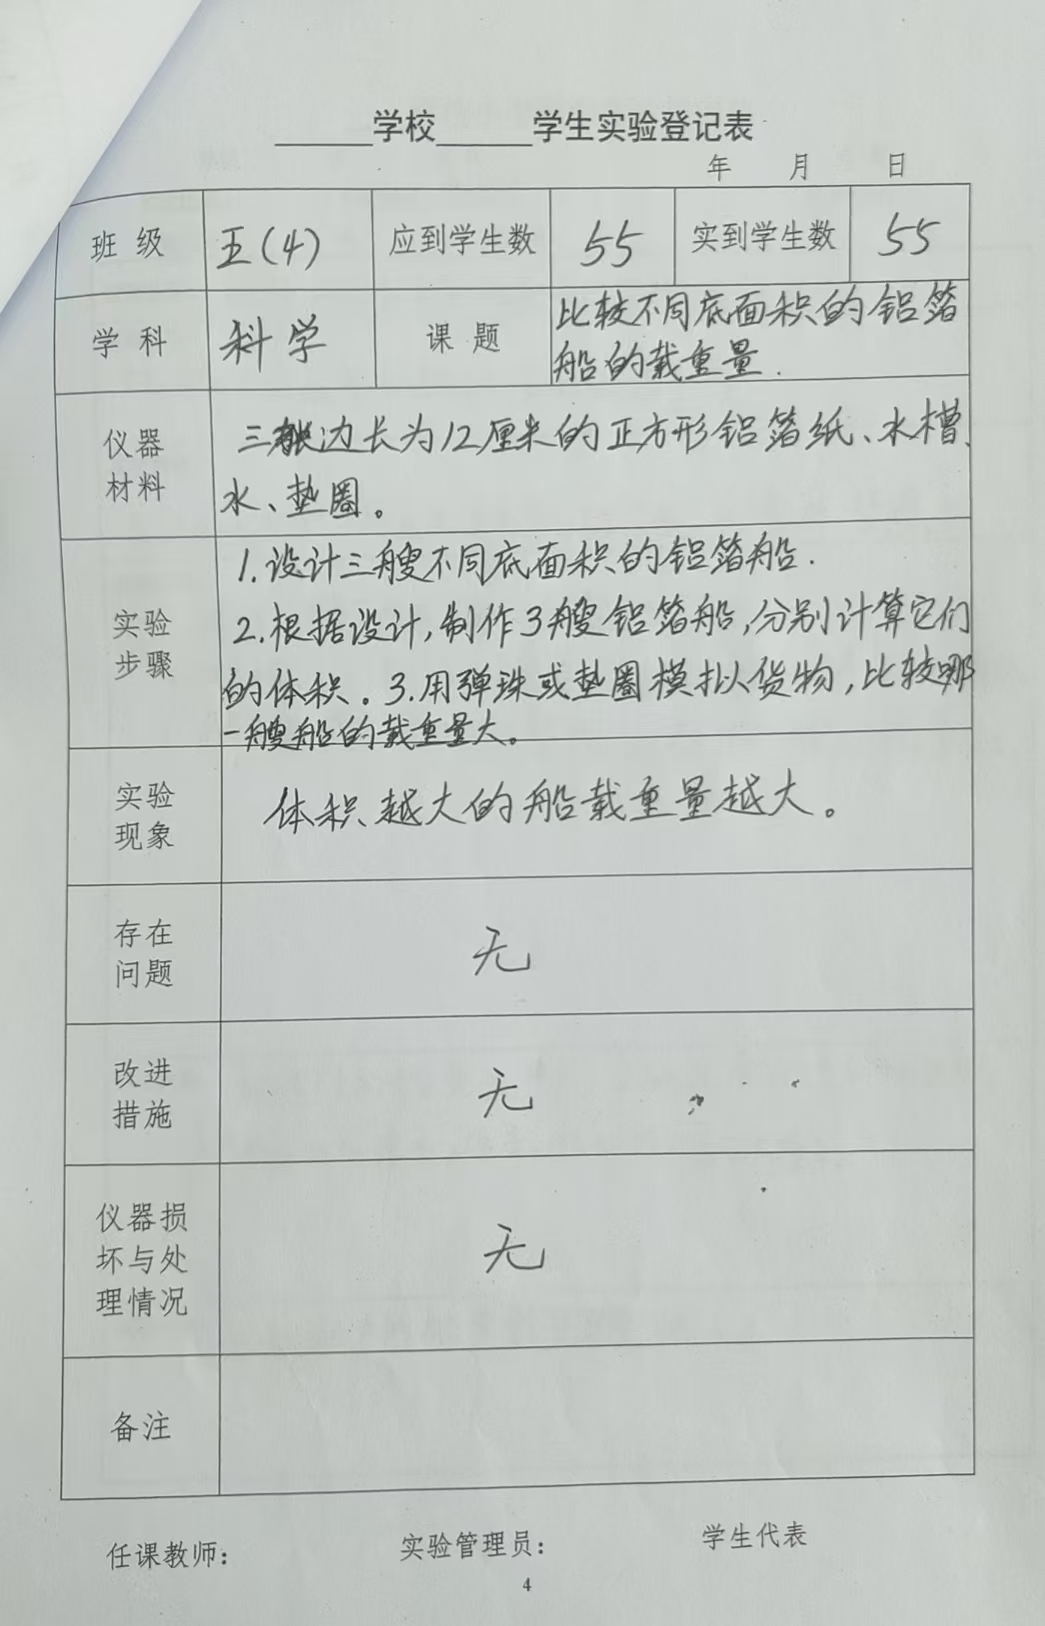 ______学校______学生实验登记表
年 月 日
班级 五(4) 应到学生数 55 实到学生数 55
学科 科学 课题 比较不同底面积的铝箔
船的载重量.
仪器
材料
三张边长为12厘米的正方形铝箔纸、水槽、
水、垫圈。
实验
步骤
1.设计三艘不同底面积的铝箔船.
2.根据设计,制作3艘铝箔船,分别计算它们
的体积。3.用弹珠或垫圈模拟货物,比较哪
一艘船的载重量大。
实验
现象
体积越大的船载重量越大。
存在
问题
无
改进
措施
无
仪器损
坏与处
理情况
无
备注
任课教师: 实验管理员: 学生代表
4